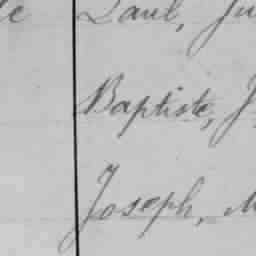 Paul, Ju
Baptiste, J
Joseph, M